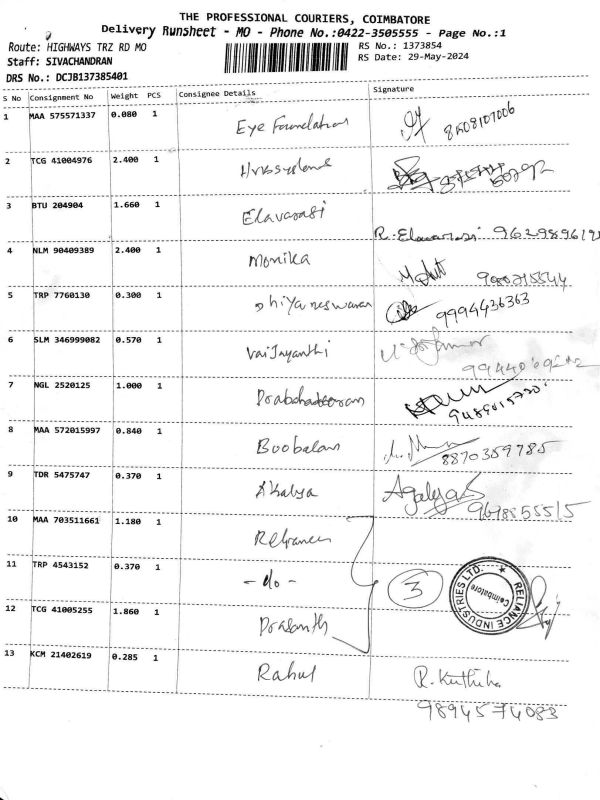 THE PROFESSIONAL COURIERS, COIMBATORE
Delivery Runsheet - MO - Phone No.:0422-3505555 - Page No.:1
Route: HIGHWAYS TRZ RD MO
RS No.: 1373854
Staff: SIVACHANDRAN
RS Date: 29-May-2024
DRS No.: DCJB137385401
S No Consignment No Weight PCS Consignee Details Signature
1 MAA 575571337 0.080 1 Eye Foundation 8508107006
2 TCG 41004976 2.400 1
3 BTU 204904 1.660 1 Elavarasi
R. Elavarasi 962989619
4 NLM 90409389 2.400 1 Monika Mohit
5 TRP 7760130 0.300 1 Dhiyaneswaran 9994436363
6 SLM 346999082 0.570 1 Vaijayanthi
7 NGL 2520125 1.000 1
8 MAA 572015997 0.840 1 Boobalan 8870359785
9 TDR 5475747 0.370 1 Akalya Agalya
9698855515
10 MAA 703511661 1.180 1 Reliance
11 TRP 4543152 0.370 1 -do- 3
RELIANCE INDUSTRIES LTD. Coimbatore
12 TCG 41005255 1.860 1 Prasanth
13 KCM 21402619 0.285 1 Rahul R. Kuthiha
9894574083